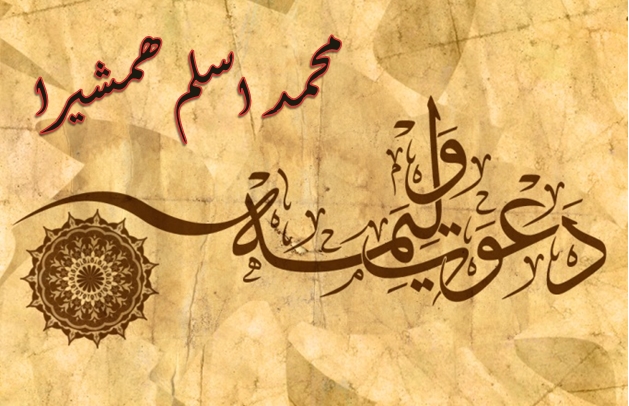 محمد اسلم ہمشیرا
دَعوَتِ وَلِیمَہ